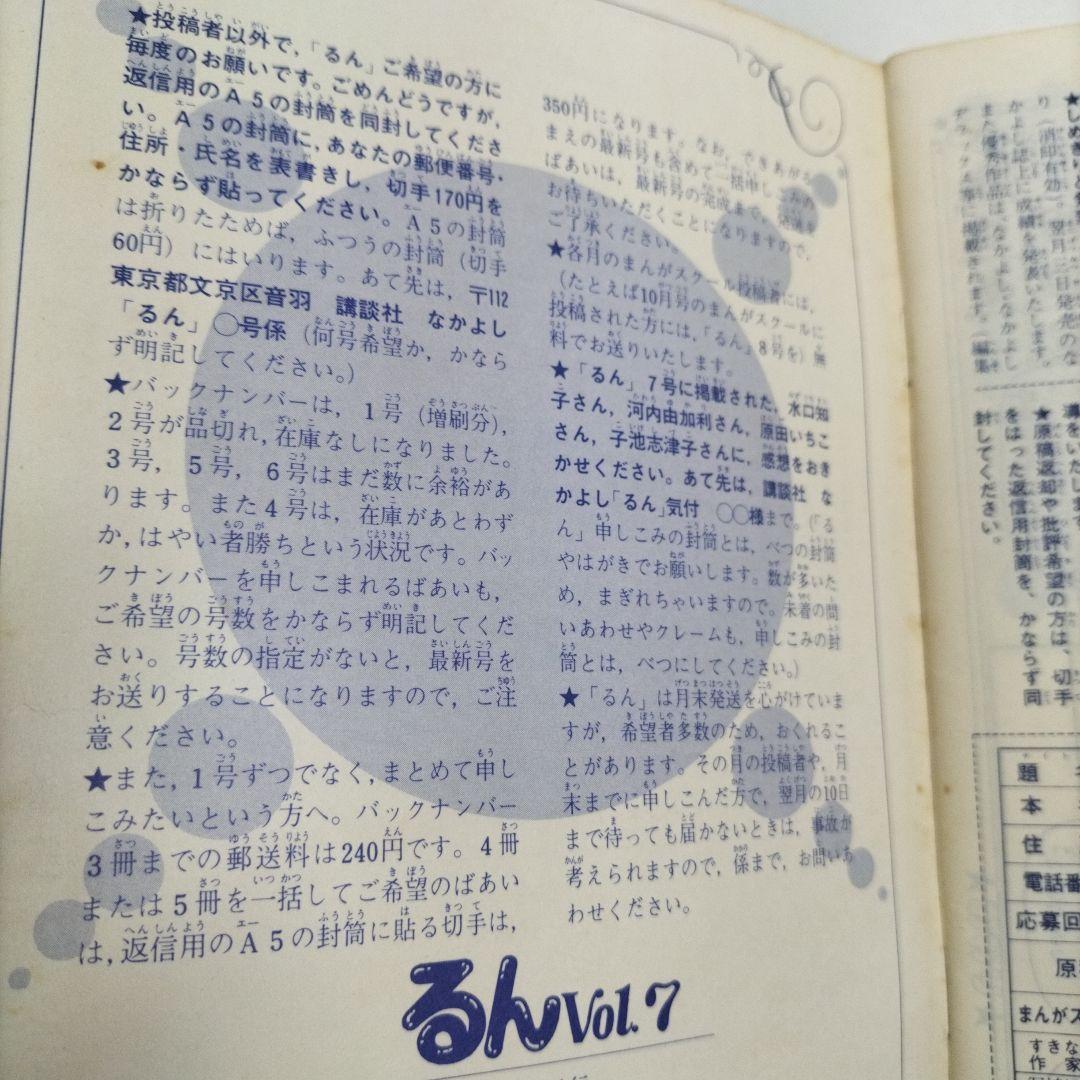 ★投稿者以外で,「るん」ご希望の方に
毎度のお願いです。ごめんどうですが,
返信用のA5の封筒を同封してくださ
い。A5の封筒に,あなたの郵便番号・
住所・氏名を表書きし,切手170円を
かならず貼ってください。A5の封筒
は折りたためば,ふつうの封筒(切手
60円)にはいります。あて先は,〒112
東京都文京区音羽 講談社 なかよし
「るん」○号係(何号希望か,かなら
ず明記してください。)
★バックナンバーは,1号(増刷分),
2号が品切れ,在庫なしになりました。
3号,5号,6号はまだ数に余裕があ
ります。また4号は,在庫があとわず
か,はやい者勝ちという状況です。バッ
クナンバーを申しこまれるばあいも,
ご希望の号数をかならず明記してくだ
さい。号数の指定がないと,最新号を
お送りすることになりますので,ご注
意ください。
★また,1号ずつでなく,まとめて申し
こみたいという方へ。バックナンバー
3冊までの郵送料は240円です。4冊
または5冊を一括してご希望のばあい
は,返信用のA5の封筒に貼る切手は,
350円になります。なお,できあがる
まえの最新号も含めて一括申しこみの
ばあいは,最新号の完成まで,発送を
お待ちいただくことになりますので,
ご了承ください。
★各月のまんがスクール投稿者には,
(たとえば10月号のまんがスクールに
投稿された方には,「るん」8号を)無
料でお送りいたします。
★「るん」7号に掲載された,水口知
子さん,河内由加利さん,原田いちこ
さん,子池志津子さんに,感想をおき
かせください。あて先は,講談社 な
かよし「るん」気付 ○○様まで。(「る
ん」申しこみの封筒とは,べつの封筒
やはがきでお願いします。数が多いた
め,まぎれちゃいますので。未着の問
いあわせやクレームも,申しこみの封
筒とは,べつにしてください。)
★「るん」は月末発送を心がけていま
すが,希望者多数のため,おくれるこ
とがあります。その月の投稿者や,月
末までに申しこんだ方で,翌月の10日
まで待っても届かないときは,事故が
考えられますので,係まで,お問いあ
わせください。
るん Vol.7
り(消印有効)。翌月三日発売のな
かよし誌上に成績を発表いたします。
また優秀作品は,なかよし,なかよし
に掲載されます。(編集
★原稿返却や批評希望の方は、切手
をはった返信用封筒を、かならず同
封してください。
題
本
住
電話番
応募回
原
まんがス
すきな
作家